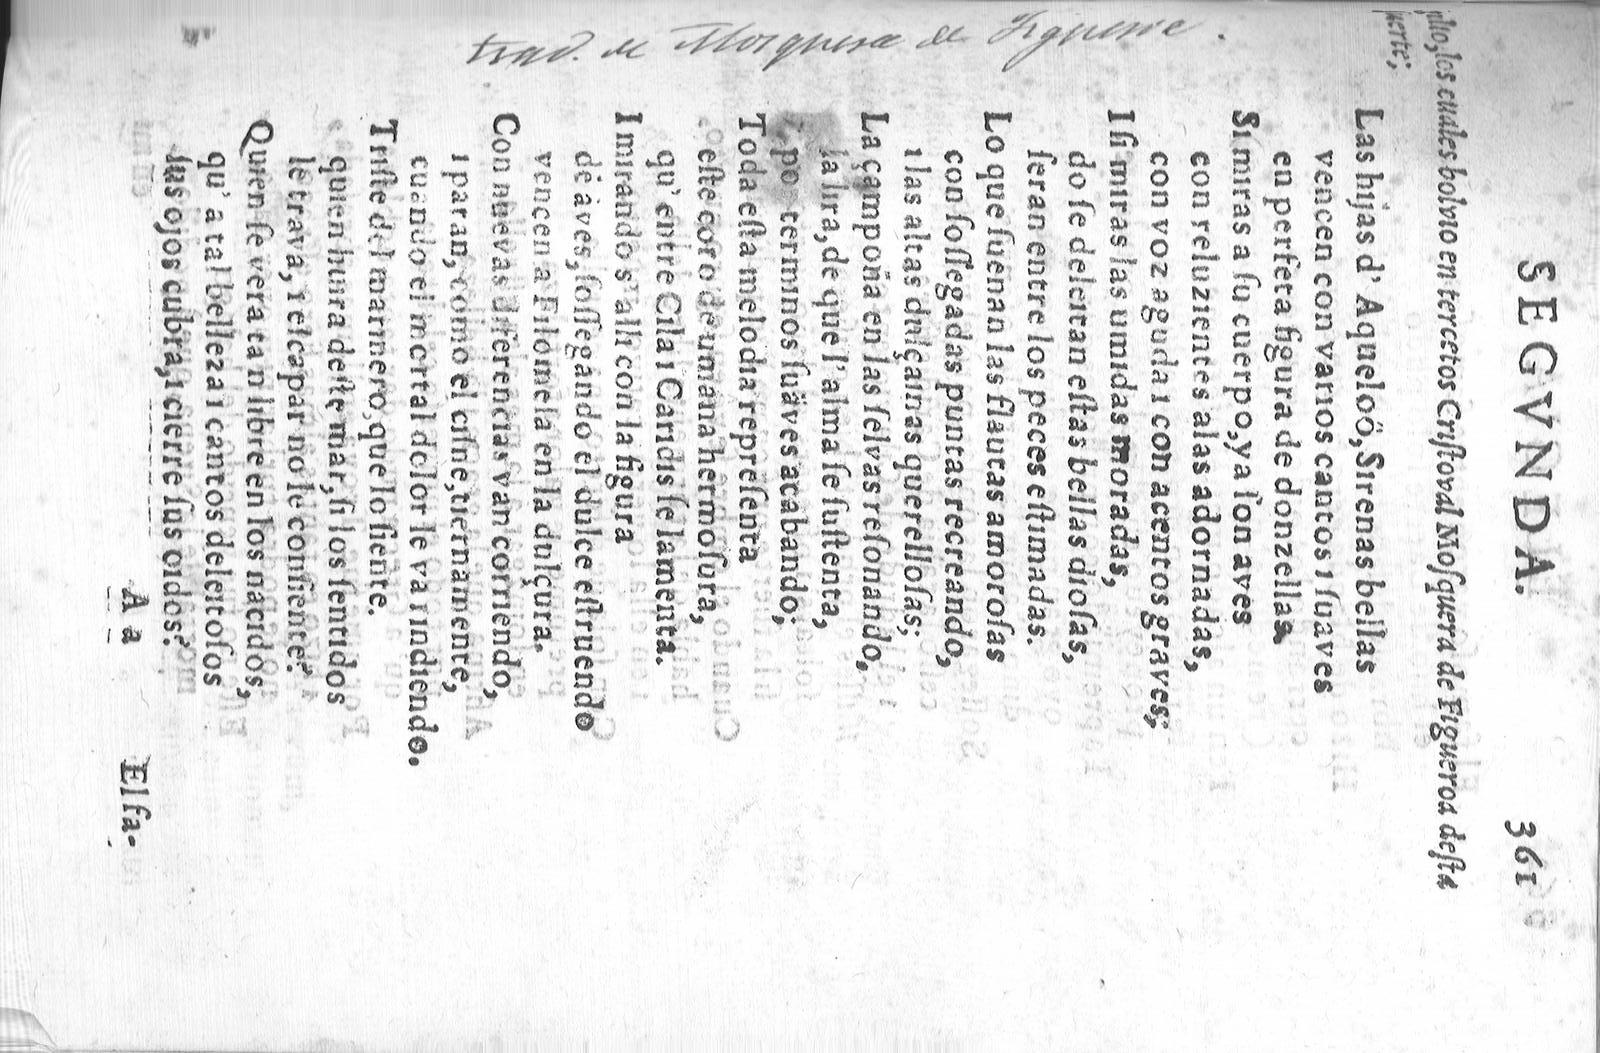 SEGVNDA. 361
los cuales bolvio en tercetos Criſtoval Moſquera de Figueroa deſta
ſuerte;
Las hijas d' Aqueloö, Sirenas bellas
vencen con varios cantos i ſuaves
en perfeta figura de donzellas.
Si miras a ſu cuerpo, ya ſon aves
con reluzientes alas adornadas,
con voz aguda i con acentos graves;
I ſi miras las umidas moradas,
do ſe deleitan eſtas bellas dioſas,
ſeran entre los peces eſtimadas.
Lo que ſuenan las flautas amoroſas
con ſoſſegadas puntas recreando,
i las altas dulçainas querelloſas;
La çampoña en las ſelvas reſonando,
la lira, de que l' alma ſe ſuſtenta,
po terminos ſuäves acabando;
Toda eſta melodia repreſenta
eſte coro de umana hermoſura,
qu' entre Cila i Caridis ſe lamenta.
I mirando s' alli con la figura
de aves, ſoſſegando el dulce eſtruendo
vencen a Filomela en la dulçura.
Con nuevas diferencias van corriendo,
i paran, como el ciſne, tiernamente,
cuando el mortal dolor le va rindiendo.
Triſte del marinero, que lo ſiente.
quien huira deſte mar, ſi los ſentidos
le trava, i eſcapar no le conſiente?
Quien ſe vera tan libre en los nacidos,
qu' a tal belleza i cantos deleitoſos
ſus ojos cubra, i cierre ſus oidos?
A a Elfa-
trad. de Mosquera de Figueroa.